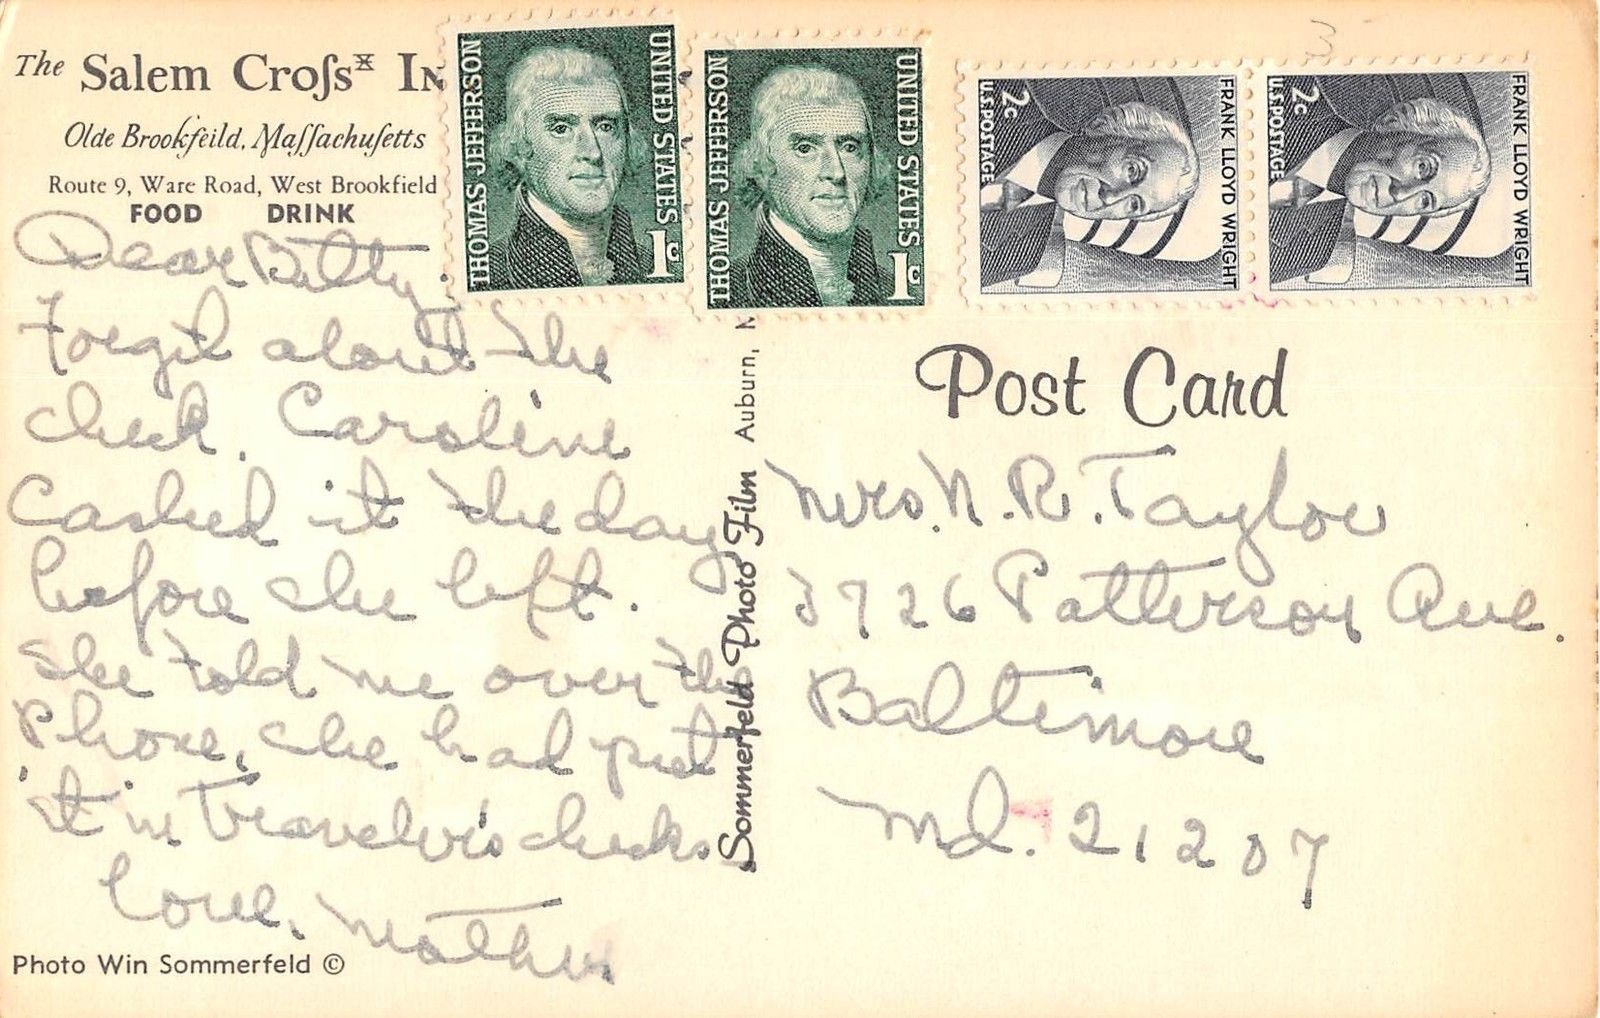 The Salem Croſs IN
Olde Brookfeild, Maſſachuſetts
Route 9, Ware Road, West Brookfield
FOOD DRINK
Dear Betty,
Forget about the
check. Caroline
Cashed it the day
before she left.
She told me over the
Phone, she had put
it in Traveler's checks
Love, Mother
Photo Win Sommerfeld ©
Sommerfeld Photo Film Auburn, M
THOMAS JEFFERSON
UNITED STATES
1c
THOMAS JEFFERSON
UNITED STATES
1c
2c
U.S. POSTAGE
FRANK LLOYD WRIGHT
2c
U.S. POSTAGE
FRANK LLOYD WRIGHT
3
Post Card
Mrs. N. R. Taylor
3726 Patterson Ave.
Baltimore
Md. 21207